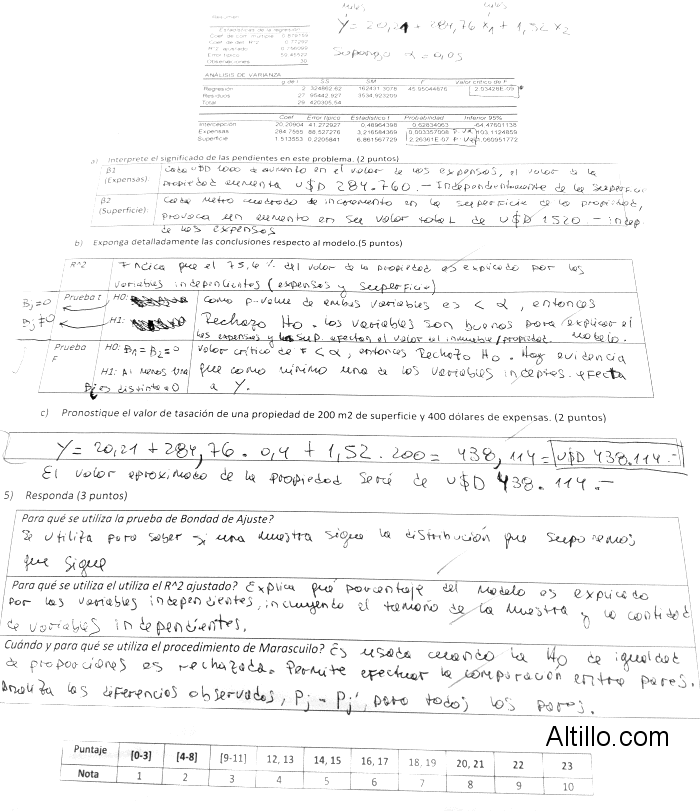 miles miles
Y = 20,21 + 284,76 x1 + 1,52 x2
Resumen
Supongo α = 0,05
Estadísticas de la regresión
Coef. de corr. múltiple 0.879155
Coef. de det. R^2
R^2 ajustado
Error típico
Observaciones 30
ANÁLISIS DE VARIANZA
g de l SS SM F Valor crítico de F
Regresión 2 324862.62 162431.3078 45.95044876 2.03428E-09
Residuos 27 95442.927 3534.923209
Total 29 420305.54
Coef. Error típico Estadístico t Probabilidad Inferior 95%
Intercepción 20.20904 41.272927 0.48964398 0.62834063 -64.47601138
Expensas 284.7595 88.527276 3.216584369 0.003357008 P-val 103.1124859
Superficie 1.513553 0.2205841 6.861567729 2.26361E-07 P-val 1.060951772
a) Interprete el significado de las pendientes en este problema. (2 puntos)
B1 (Expensas): Cada U$D 1000 de aumento en el valor de las expensas, el valor de la
propiedad aumenta U$D 284.760.- Independientemente de la superficie
B2 (Superficie): Cada metro cuadrado de incremento en la superficie de la propiedad,
provoca un aumento en su valor total de U$D 1520.- indep
de las expensas
b) Exponga detalladamente las conclusiones respecto al modelo.(5 puntos)
R^2 Indica que el 75,6 % del valor de la propiedad es explicado por las
variables independientes (expensas y superficie)
Bj=0 Prueba t H0: Como p-value de ambas variables es < α, entonces
Bj≠0 H1: Rechazo Ho. Las variables son buenas para explicar el modelo.
las expensas y la sup. afectan el valor el inmueble/propiedad.
Prueba F H0: B1 = B2 = 0 Valor crítico de F < α, entonces Rechazo Ho. Hay evidencia
H1: Al menos una que como mínimo una de las variables indeptes. afecta
Bj es distinta a 0 a Y.
c) Pronostique el valor de tasación de una propiedad de 200 m2 de superficie y 400 dólares de expensas. (2 puntos)
Y = 20,21 + 284,76 . 0,4 + 1,52 . 200 = 438,114 = U$D 438.114.-
El valor aproximado de la propiedad sería de U$D 438.114.-
5) Responda (3 puntos)
Para qué se utiliza la prueba de Bondad de Ajuste?
Se utiliza para saber si una muestra sigue la distribución que suponemos
que sigue
Para qué se utiliza el utiliza el R^2 ajustado? Explica qué porcentaje del modelo es explicado
por las variables independientes, incluyendo el tamaño de la muestra y la cantidad
de variables independientes.
Cuándo y para qué se utiliza el procedimiento de Marascuilo? Es usada cuando la Ho de igualdad
de proporciones es rechazada. Permite efectuar la comparación entre pares.
Analiza las diferencias observadas, Pj - Pj', para todos los pares.
Altillo.com
Puntaje [0-3] [4-8] [9-11] 12, 13 14, 15 16, 17 18, 19 20, 21 22 23
Nota 1 2 3 4 5 6 7 8 9 10